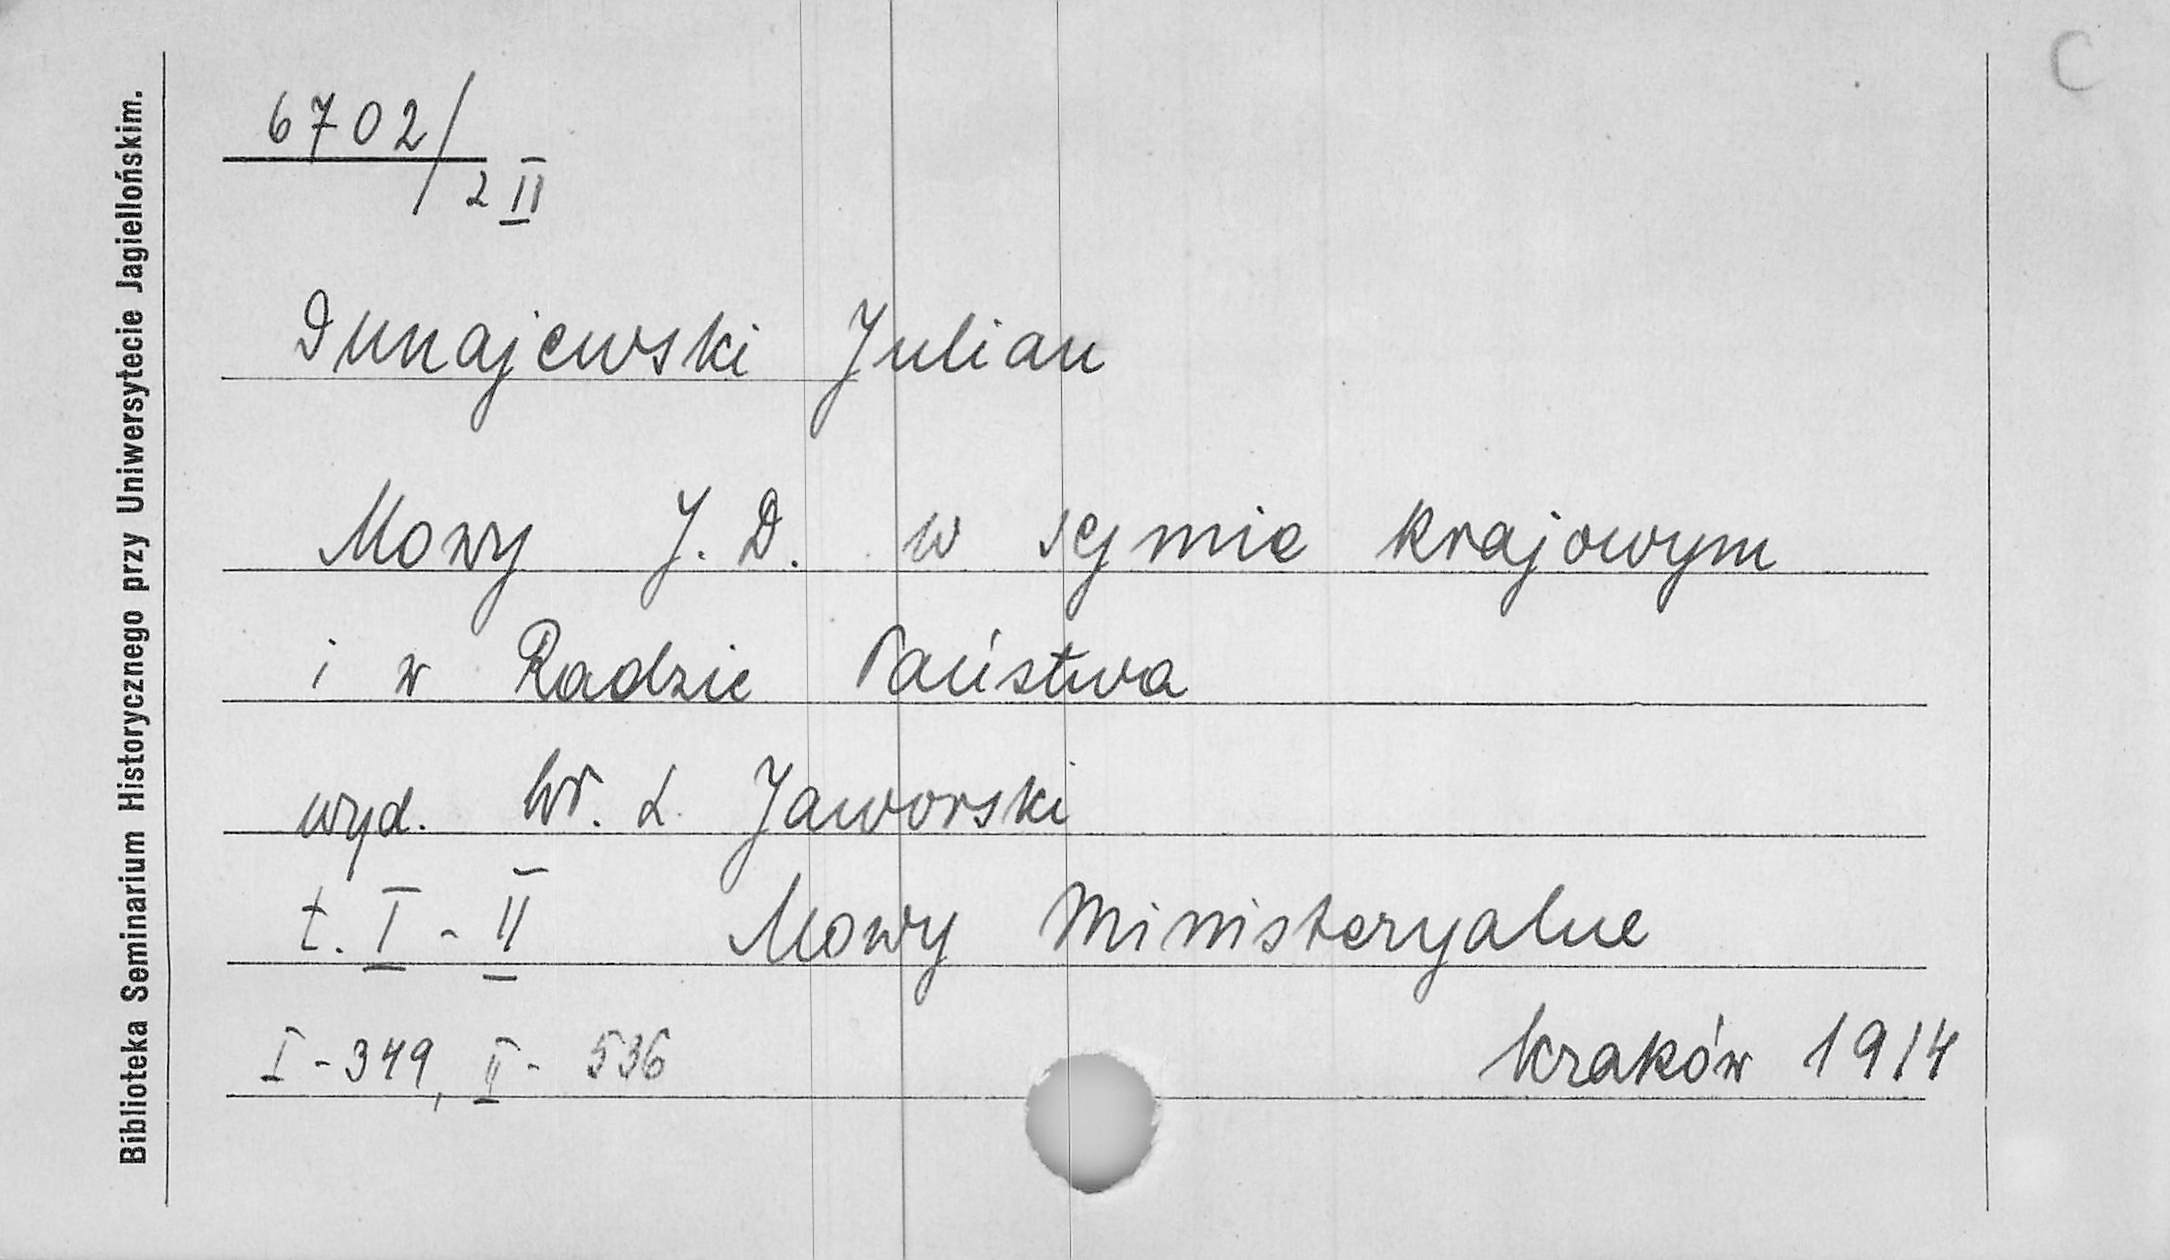 C
6702/
2 II
Dunajewski Julian
Mowy J. D. w sejmie krajowym
i w Radzie Państwa
wyd. Wł. L. Jaworski
t. I - II Mowy Ministeryalne
I - 349, II - 536
Kraków 1914
Biblioteka Seminarium Historycznego przy Uniwersytecie Jagiellońskim.